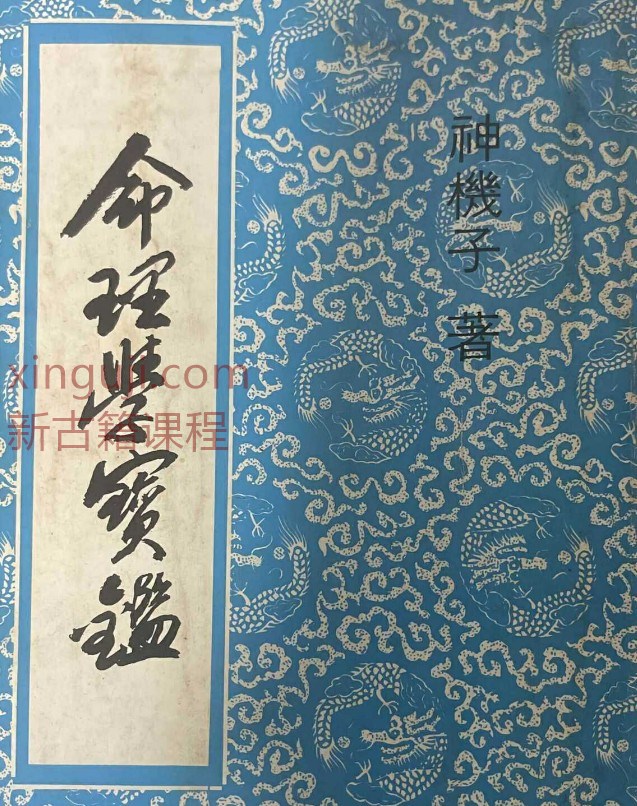 神機子 著
命理學寶鑑
xinguji.com
新古籍课程